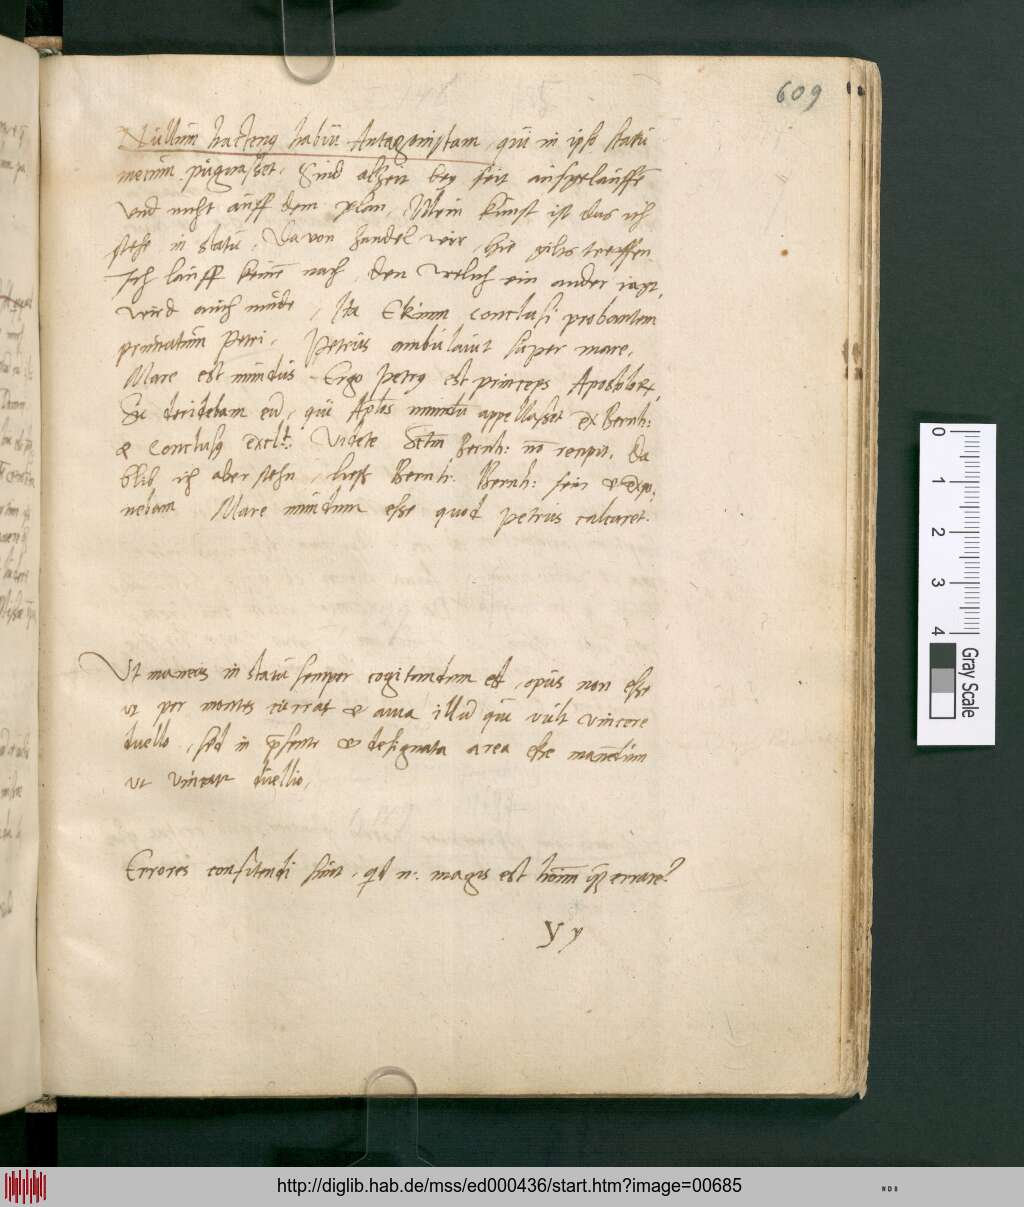 609
Nullum hactenq habui Antagonistam, qui in ipso statu
mecum pugnasset. Sind alzeit bey seit außgelauffē
und nicht auff dem plan, Mein kunst ist das ich
stehe in statu, Davon handel wir, hie gilts treffen
Ich lauff keinē nach, den welch ein ander iagt,
wird auch mude, Ita Ekium conclusi probantem
primatum Petri. Petrus ambulavit super mare,
Mare est mundus Ergo Petrq est princeps Apostolorx,
Sic deridebam eū, qui Aplos appellasset ex Bernh:
& conclusq Videte Bernh: nō Da
blib ich aber stehn, ließ Bernh. Bernh: sein & expo,
nebam Mare mundum esse quod Petrus calcaret.
Ut maneas in statu semper cogitandum est, opus non esse
ut per montes currat & avia illū qui vult vincere
duello, sed in psenti & designata area esse manēdum
ut vincatr duellio,
Errores confitendi sunt, qid n: magis est homīm q errare?
Y y
0
1
2
3
4
Gray Scale
http://diglib.hab.de/mss/ed000436/start.htm?image=00685